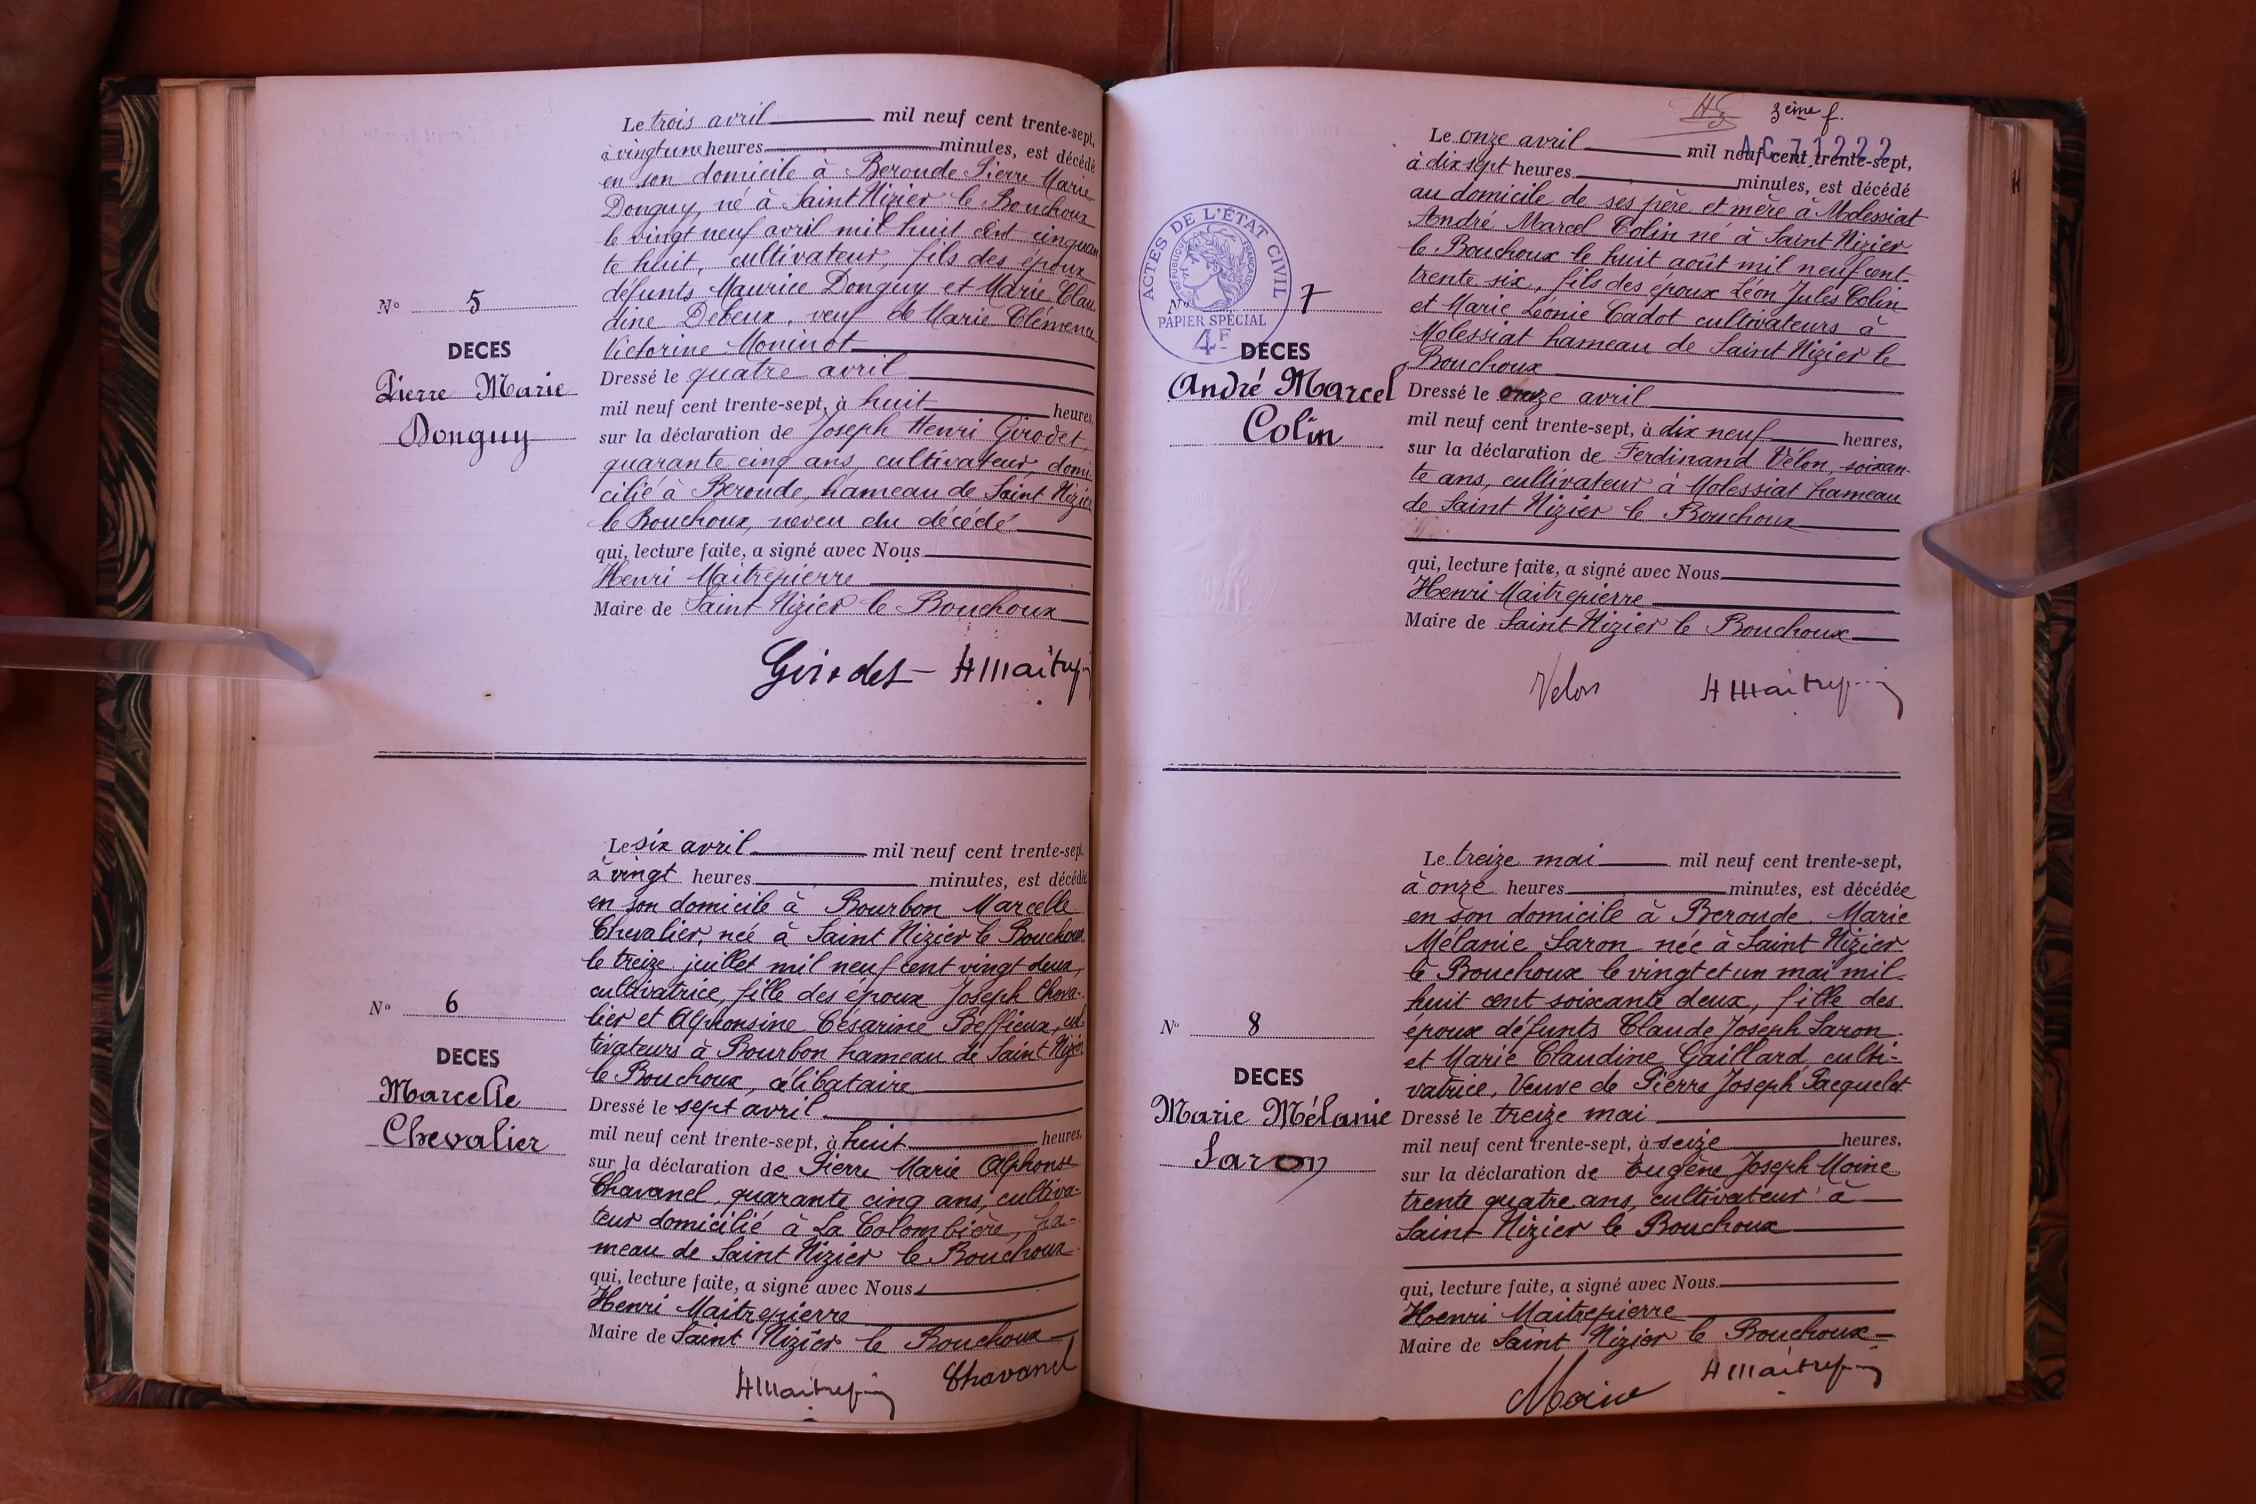 Le trois avril mil neuf cent trente-sept,
à vingt une heures minutes, est décédé
en son domicile à Beroude Pierre Marie
Donguy, né à Saint Nizier le Bouchoux
le vingt neuf avril mil huit cent cinquan
te huit, cultivateur, fils des époux
défunts Maurice Donguy et Marie Clau
dine Debeux, veuf de Marie Clémence
Victorine Moninot
N° 5
DECES
Pierre Marie
Donguy
Dressé le quatre avril
mil neuf cent trente-sept, à huit heures,
sur la déclaration de Joseph Henri Girodet,
quarante cinq ans, cultivateur, domi
cilié à Beroude, hameau de Saint Nizier
le Bouchoux, neveu du décédé
qui, lecture faite, a signé avec Nous
Henri Maitrepierre
Maire de Saint Nizier le Bouchoux
Girodet HMaitrep
Le six avril mil neuf cent trente-sept,
à vingt heures minutes, est décédée
en son domicile à Bourbon Marcelle
Chevalier, née à Saint Nizier le Bouchoux
le treize juillet mil neuf cent vingt deux,
cultivatrice, fille des époux Joseph Cheva-
lier et Alphonsine Césarine Beffieux, cul-
tivateurs à Bourbon hameau de Saint Nizier
le Bouchoux, célibataire
N° 6
DECES
Marcelle
Chevalier
Dressé le sept avril
mil neuf cent trente-sept, à huit heures,
sur la déclaration de Pierre Marie Alphonse
Chavanel, quarante cinq ans, cultiva-
teur domicilié à La Colombière, ha-
meau de Saint Nizier le Bouchoux
qui, lecture faite, a signé avec Nous
Henri Maitrepierre
Maire de Saint Nizier le Bouchoux
HMaitrep Chavanel
3ème f.
AC 71222
Le onze avril mil neuf cent trente-sept,
à dix sept heures minutes, est décédé
au domicile de ses père et mère à Molessiat
André Marcel Colin né à Saint Nizier
le Bouchoux le huit août mil neuf cent
trente six, fils des époux Léon Jules Colin
et Marie Léonie Cadot cultivateurs à
Molessiat hameau de Saint Nizier le
Bouchoux
ACTES DE L'ÉTAT CIVIL
RÉPUBLIQUE FRANÇAISE
PAPIER SPÉCIAL
4F
N° 7
DECES
André Marcel
Colin
Dressé le onze avril
mil neuf cent trente-sept, à dix neuf heures,
sur la déclaration de Ferdinand Vélon, soixan-
te ans, cultivateur à Molessiat hameau
de Saint Nizier le Bouchoux
qui, lecture faite, a signé avec Nous
Henri Maitrepierre
Maire de Saint Nizier le Bouchoux
Velon HMaitrep
Le treize mai mil neuf cent trente-sept,
à onze heures minutes, est décédée
en son domicile à Beroude Marie
Mélanie Saron née à Saint Nizier
le Bouchoux le vingt et un mai mil
huit cent soixante deux, fille des
époux défunts Claude Joseph Saron
et Marie Claudine Gaillard culti-
vatrice, Veuve de Pierre Joseph Pacquelet
N° 8
DECES
Marie Mélanie
Saron
Dressé le treize mai
mil neuf cent trente-sept, à seize heures,
sur la déclaration de Eugène Joseph Moine
trente quatre ans, cultivateur à
Saint Nizier le Bouchoux
qui, lecture faite, a signé avec Nous
Henri Maitrepierre
Maire de Saint Nizier le Bouchoux
Moine HMaitrep